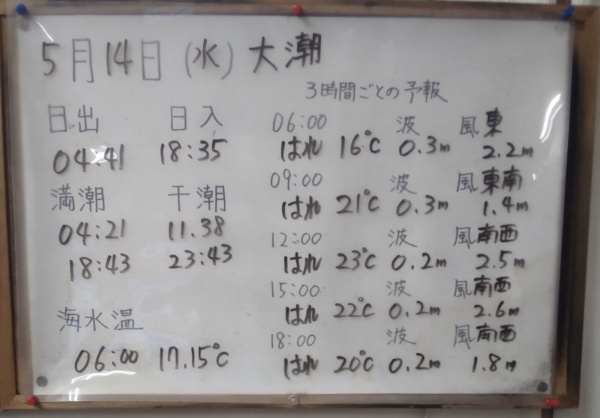 5月14日(水)大潮
3時間ごとの予報
日出 日入
04:41 18:35
満潮 干潮
04:21 11.38
18:43 23:43
海水温
06:00 17.15℃
06:00 波 風東
はれ 16℃ 0.3m 2.2m
09:00 波 風東南
はれ 21℃ 0.3m 1.4m
12:00 波 風南西
はれ 23℃ 0.2m 2.5m
15:00 波 風南西
はれ 22℃ 0.2m 2.6m
18:00 波 風南西
はれ 20℃ 0.2m 1.8m